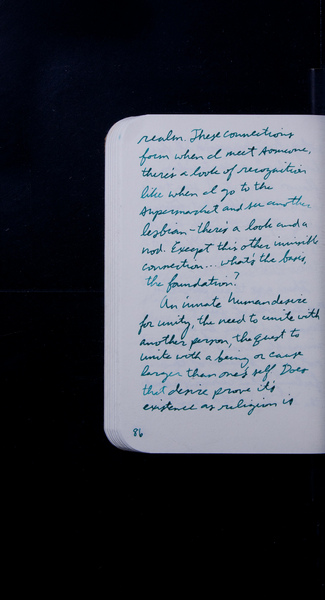 realm. These connections
form when I meet someone,
there's a look of recognition
like when I go to the
supermarket and see another
lesbian – there's a look and a
nod. Except this other invisible
connection... what's the basis,
the foundation?
An innate human desire
for unity, the need to unite with
another person, the quest to
unite with a being or cause
larger than one's self. Does
that desire prove it's
existence as religion is
86